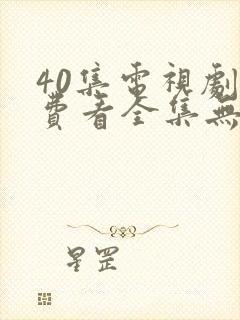 40集電視劇
費看全集無
星罡